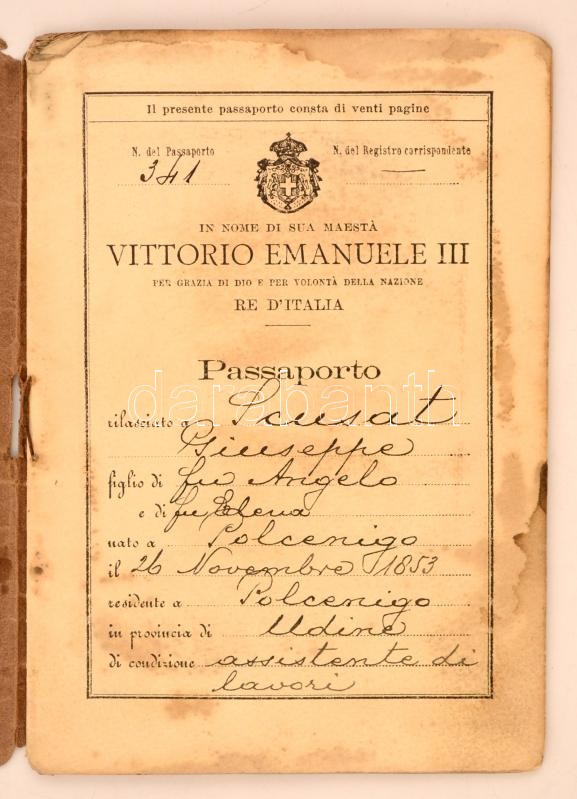 Il presente passaporto consta di venti pagine
N. del Passaporto
N. del Registro corrispondente
341
IN NOME DI SUA MAESTÀ
VITTORIO EMANUELE III
PER GRAZIA DI DIO E PER VOLONTÀ DELLA NAZIONE
RE D'ITALIA
Passaporto
darabanth
rilasciato a
Giuseppe
figlio di fu Angelo
e di fu Elena
nato a Polcenigo
il 26 Novembre 1853
residente a Polcenigo
in provincia di Udine
di condizione assistente di
lavori